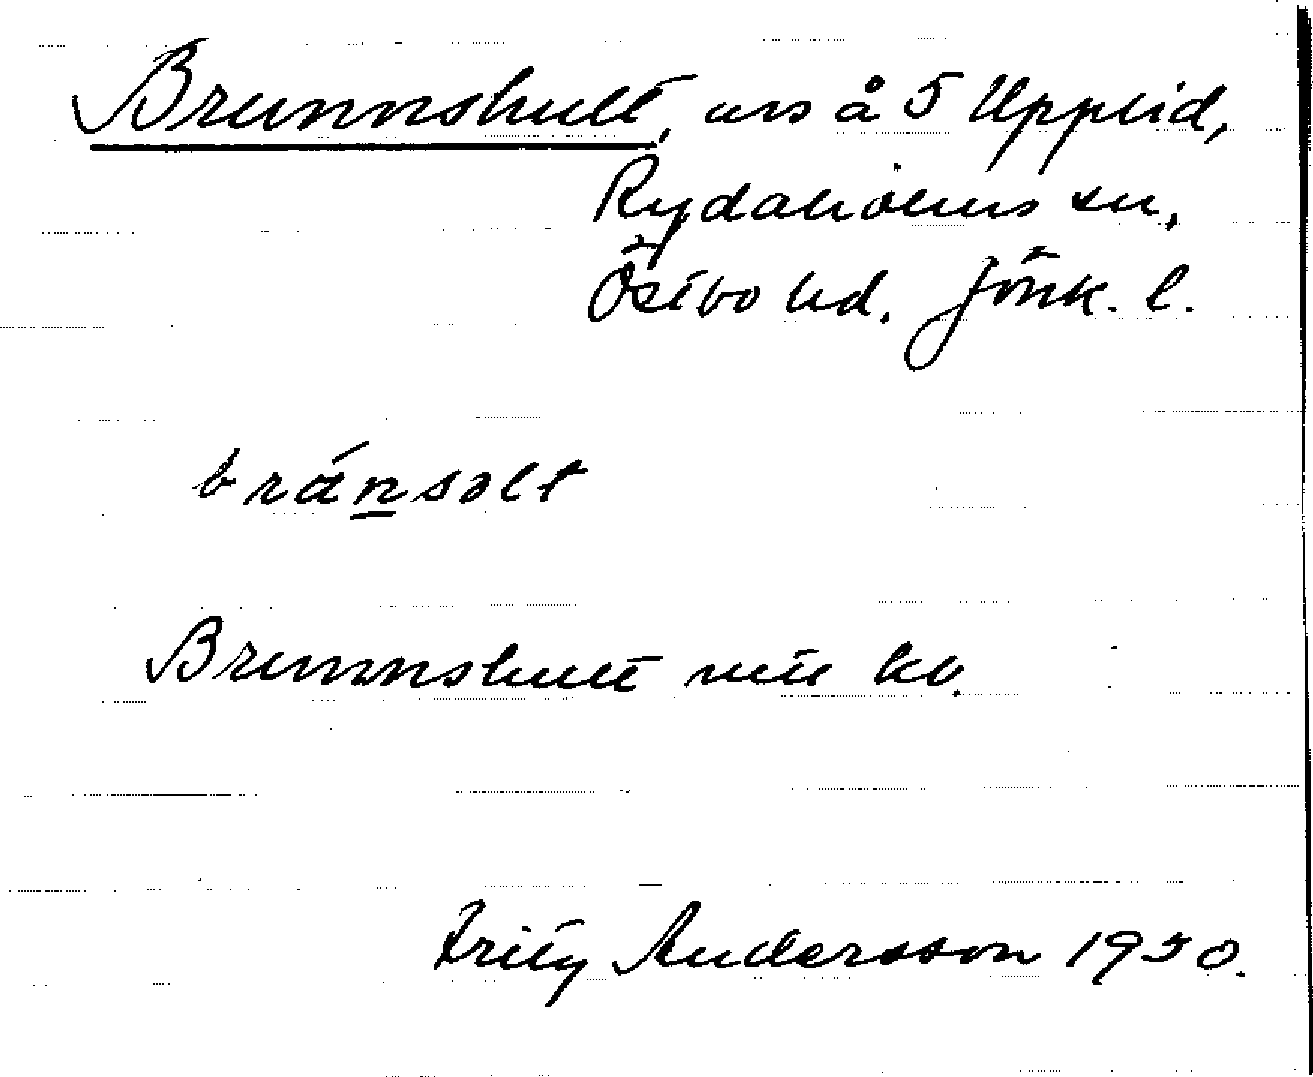 Brunnshult, avs å 5 Upplid,
Rydaholms sn,
Östbo hd. Jönk. l.
bránsolt
Brunnshult kb.
Frity Andersson 1950.